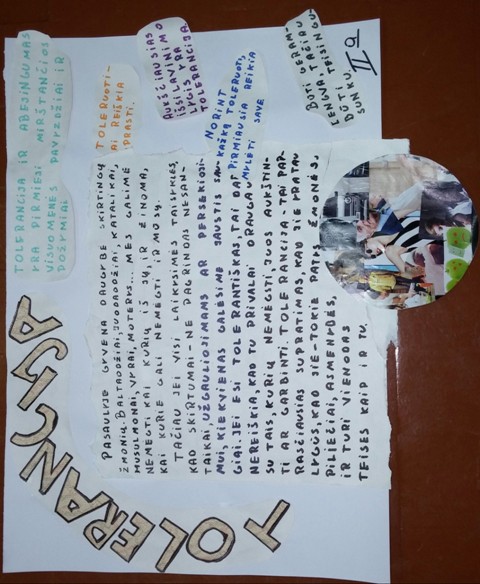 TOLERANCIJA
TOLERANCIJA IR ABEJINGUMAS
YRA PIRMIEJI MIRŠTANČIOS
VISUOMENĖS PAVYZDŽIAI IR
POŽYMIAI
TOLERUOTI -
AI REIŠKIA
PRASTI.
AUKŠČIAUSIAS
IŠSILAVINIMO
LYGIS YRA
TOLERANCIJA.
NORINT
KAŽKĄ TOLERUOTI,
PIRMIAUSIA REIKIA
MYLĖTI SAVE
BŪTI GERAM -
LENGVA, TAČIAU
BŪTI TEISINGU -
SUNKU.
II a
PASAULYJE GYVENA DAUGYBĖ SKIRTINGŲ
ŽMONIŲ. BALTAODŽIAI, JUODAODŽIAI, KATALIKAI,
MUSULMONAI, VYRAI, MOTERYS... MES GALIME
NEMĖGTI KAI KURIŲ IŠ JŲ, IR ŽINOMA,
KAI KURIE GALI NEMĖGTI IR MŪSŲ.
TAČIAU JEI VISI LAIKYSIMĖS TAISYKLĖS,
KAD SKIRTUMAI - NE PAGRINDAS NESAN-
TAIKAI, UŽGAULIOJIMAMS AR PERSEKIOJI-
MUI, KIEKVIENAS GALĖSIME JAUSTIS SAU-
GIAI. JEI ESI TOLERANTIŠKAS, TAI DAR
NEREIŠKIA, KAD TU PRIVALAI DRAUGAU-
SU TAIS, KURIŲ NEMĖGSTI, JUOS AUKŠTIN-
TI AR GARBINTI. TOLERANCIJA - TAI PAP-
RASČIAUSIAS SUPRATIMAS, KAD JIE PRATAU
LYGŪS, KAD JIE - TOKIE PATYS ŽMONĖS,
PILIEČIAI, ASMENYBĖS,
IR TURI VIENODAS
TEISES KAIP IR TU.